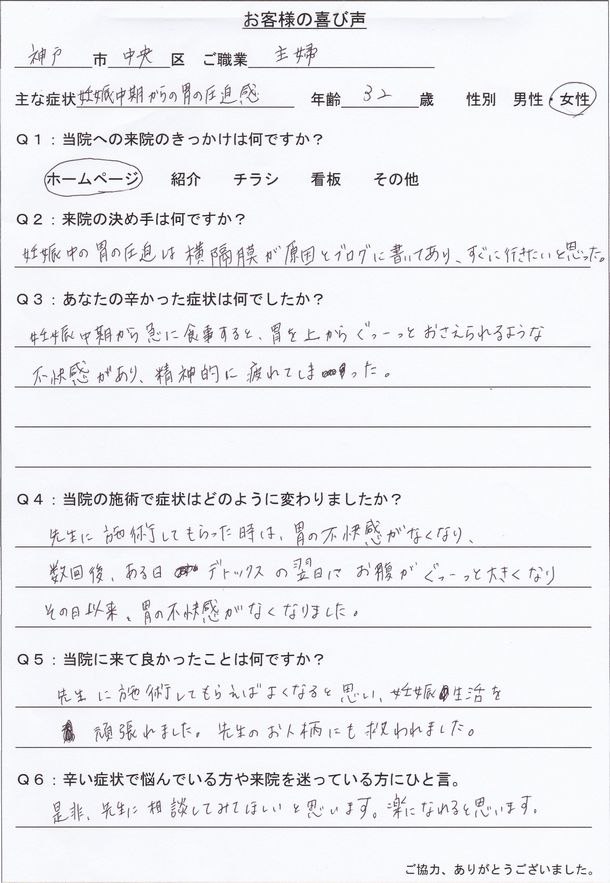 お客様の喜び声
神戸 市 中央 区 ご職業 主婦
主な症状 妊娠中期からの胃の圧迫感 年齢 32 歳 性別 男性・女性
Q1：当院への来院のきっかけは何ですか？
ホームページ 紹介 チラシ 看板 その他
Q2：来院の決め手は何ですか？
妊娠中の胃の圧迫は横隔膜が原因とブログに書いてあり、すぐに行きたいと思った。
Q3：あなたの辛かった症状は何でしたか？
妊娠中期から急に食事すると、胃を上からぐっーっとおさえられるような
不快感があり、精神的に疲れてしまった。
Q4：当院の施術で症状はどのように変わりましたか？
先生に施術してもらった時は、胃の不快感がなくなり、
数回後、ある日デトックスの翌日にお腹がぐっーっと大きくなり
その日以来、胃の不快感がなくなりました。
Q5：当院に来て良かったことは何ですか？
先生に施術してもらえばよくなると思い、妊娠生活を
頑張れました。先生のお人柄にも救われました。
Q6：辛い症状で悩んでいる方や来院を迷っている方にひと言。
是非、先生に相談してみてほしいと思います。楽になれると思います。
ご協力、ありがとうございました。